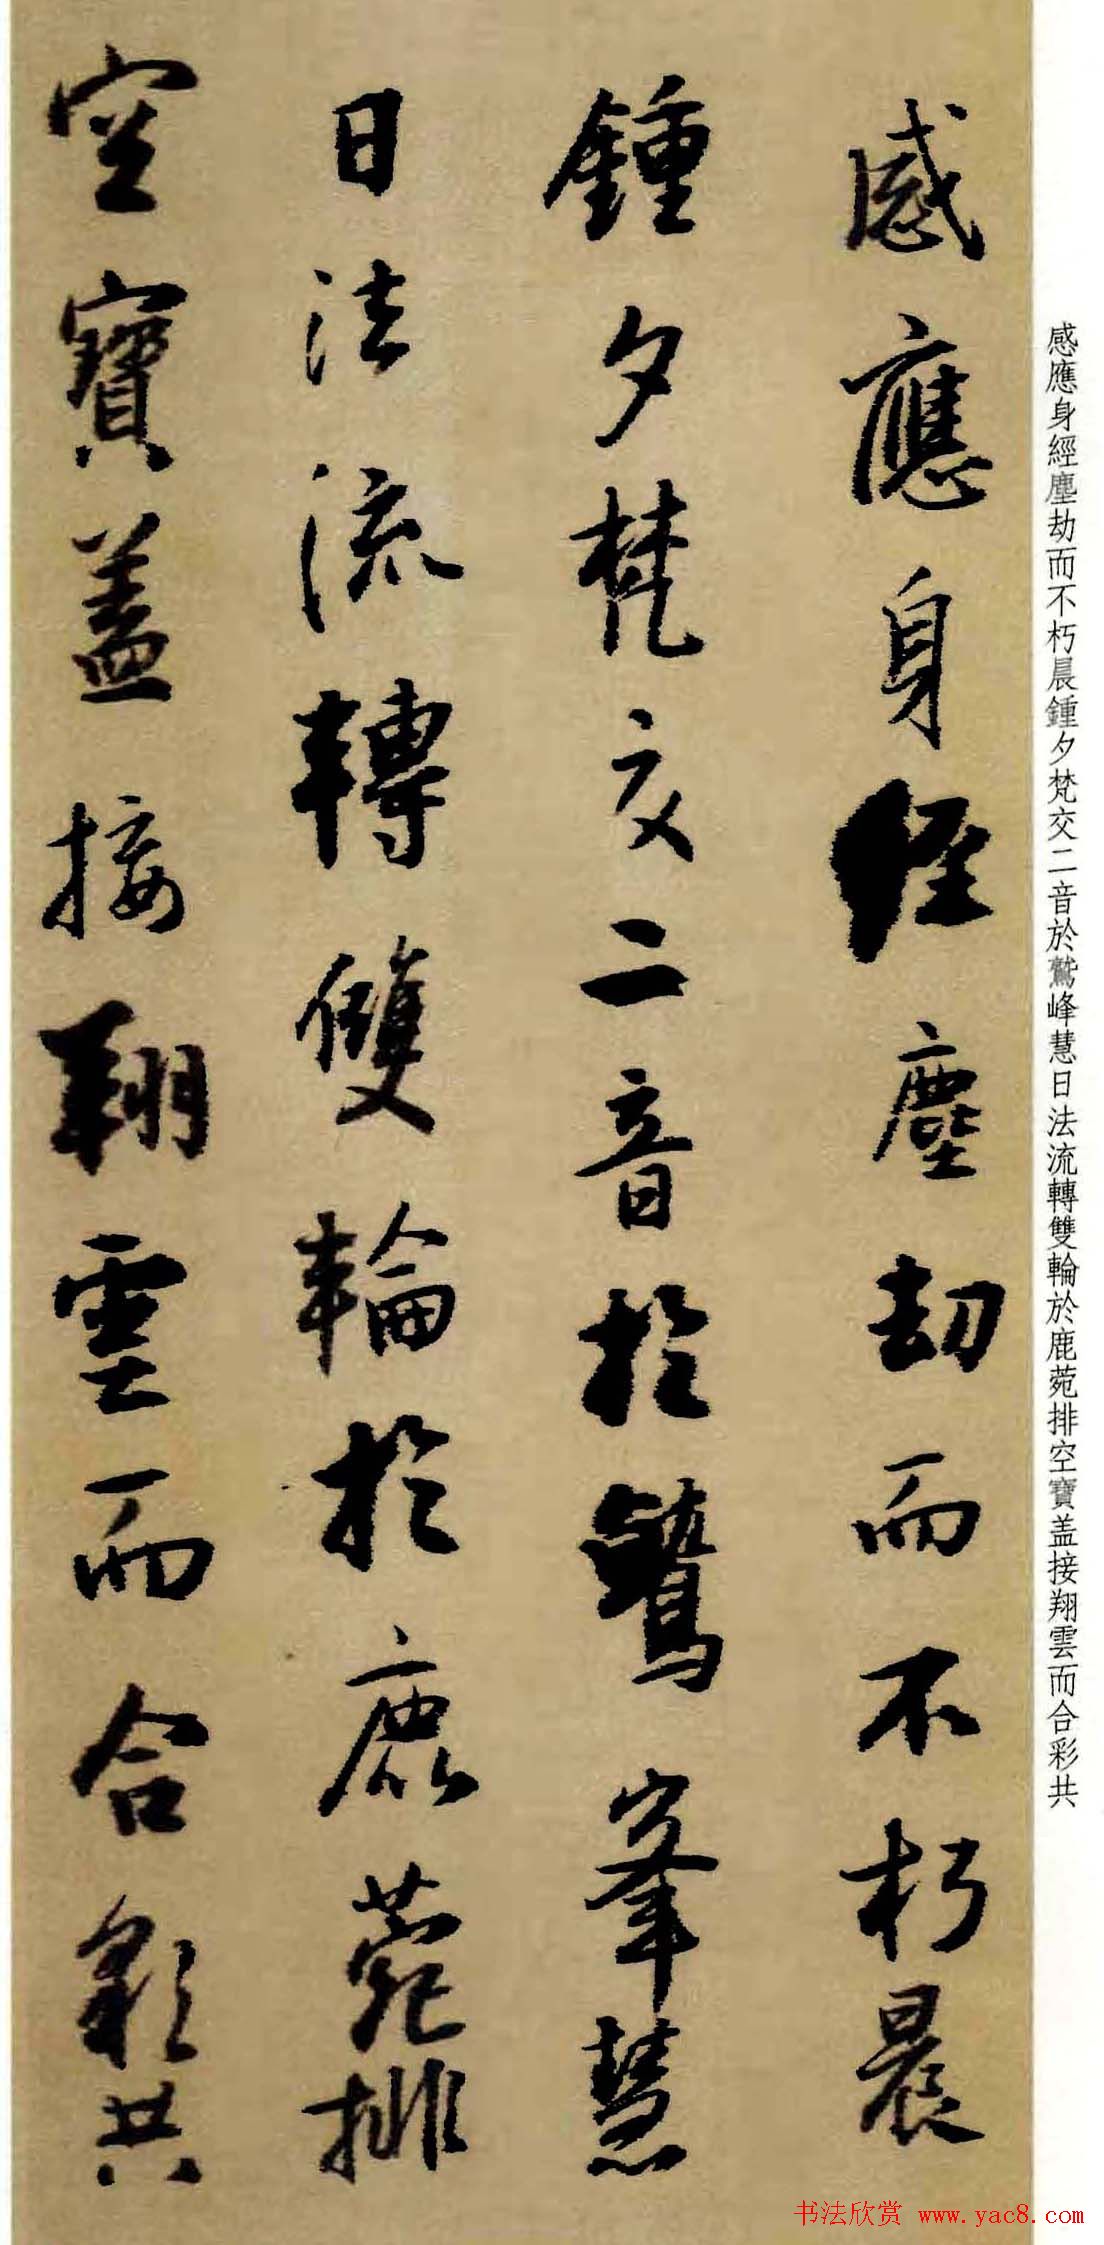 感應身經塵劫而不朽晨
鍾夕梵交二音於鷲峯慧
日法流轉雙輪於鹿菀排
空寶蓋接翔雲而合彩共
感應身經塵劫而不朽晨鍾夕梵交二音於鷲峰慧日法流轉雙輪於鹿菀排空寶盖接翔雲而合彩共
书法欣赏 www.yac8.com